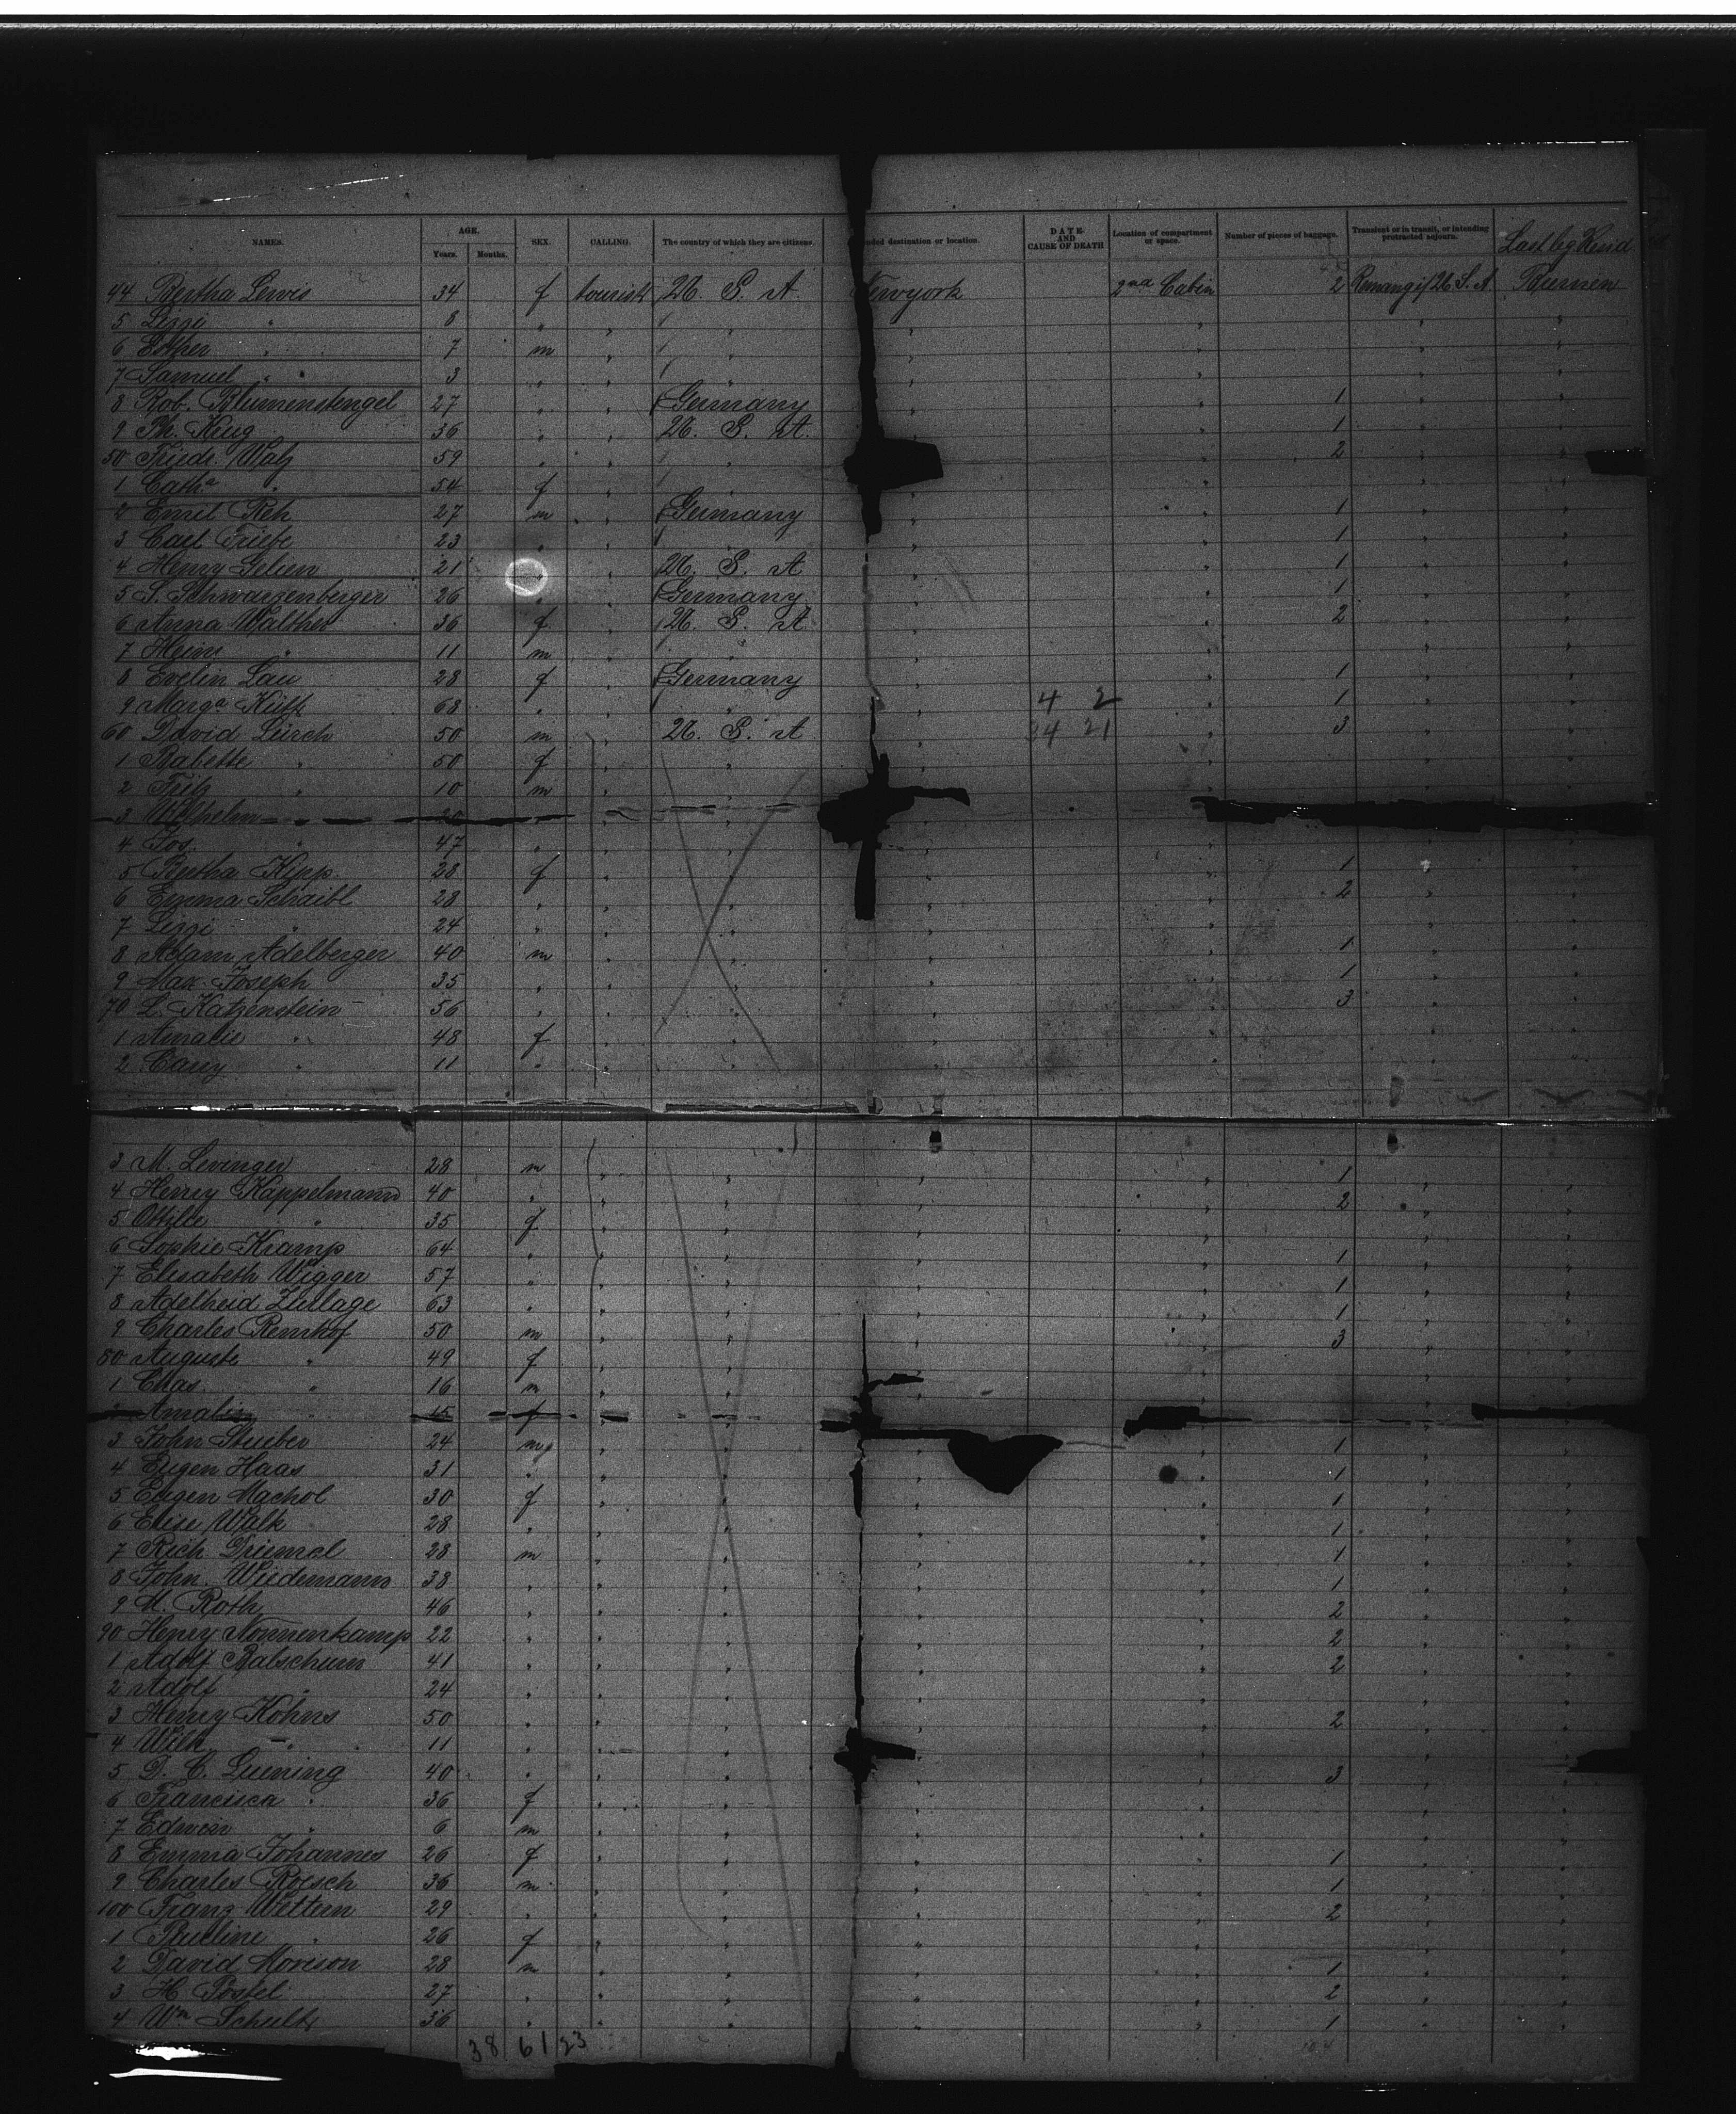 NAMES. AGE. Years. Months. SEX. CALLING. The country of which they are citizens. nded destination or location. DATE AND CAUSE OF DEATH Location of compartment or space. Number of pieces of baggage. Transient or in transit, or intending protracted sojourn. Last leg
44 Bertha Lewis 34 f tourist U. S. A. Newyork 2nd Cabin 2 U. S. A Bremen
5 Lizzi " 8 " " " " " " "
6 Esther " 7 m " " " " " "
7 Samuel " 3 " " " " " " "
8 Rob. Blumenstengel 27 " " Germany " " 1 " "
9 Ph. Krug 36 " " U. S. A. " " 1 " "
50 Friedr. Walz 59 " " " " 2 " "
1 Catha " 54 f " " " " " "
2 Emil Reh 27 m " Germany " " 1 " "
3 Carl Triebe 23 " " " " " 1 " "
4 Henry Gelien 21 " " U. S. A " " 1 " "
5 S. Schwarzenberger 26 " " Germany " " 1 " "
6 Anna Walther 36 f " U. S. A " " 2 " "
7 Heinr " 11 m " " " " " "
8 Evelin Lau 28 f " Germany " " 1 " "
9 Marga 68 " " " " 4 2 " 1 " "
60 David Lerch 50 m " U. S. A " 34 21 " 3 " "
1 Babette " 50 f " " " " " "
2 Fritz " 10 m " " " " " "
3 Wilhelm 20 " " "
4 Jos. " 47 " " " " " " "
5 Bertha Kipp 28 f " " " " 1 " "
6 Emma Schaibl 28 " " " " " 2 " "
7 Lizzi " 24 " " " " " " "
8 Adam Adelberger 40 m " " " " 1 " "
9 Max Joseph 35 " " " " " 1 " "
70 L. Katzenstein 56 " " " " " 3 " "
1 Amalie " 48 f " " " " " "
2 Carry " 11 " " " " " " "
3 M. Levinger 28 m " " " " 1 " "
4 Henry Kappelmann 40 " " " " " 2 " "
5 Ottilie " 35 f " " " " " "
6 Sophie Kramp 64 " " " " " 1 " "
7 Elisabeth Wigger 57 " " " " " 1 " "
8 Adelheid Zurlage 63 " " " " " 1 " "
9 Charles Remhof 50 m " " " " 3 " "
80 Auguste " 49 f " " " " " "
1 Chas. " 16 m " " " " " "
Amalie " 15 f " "
3 John Stuber 24 m " " " 1 " "
4 Eugen Haas 31 " " " " 1 " "
5 Eugen Machol 30 f " " " " 1 " "
6 Elise Walk 28 " " " " " 1 " "
7 Rich. Driemel 28 m " " " " 1 " "
8 John. Wiedemann 38 " " " " " 1 " "
9 M. Roth 46 " " " " " 2 " "
90 Henry Nonnenkamp 22 " " " " " 2 " "
1 Adolf Batschum 41 " " " " " 2 " "
2 Adolf " 24 " " " " " " "
3 Henry Kohns 50 " " " " " 2 " "
4 Wilh. " 11 " " " " " "
5 D. C. Luening 40 " " " " " 3 " "
6 Francisca " 36 f " " " " " "
7 Edwin " 6 m " " " " " "
8 Emma Johannes 26 f " " " " 1 " "
9 Charles Roesch 36 m " " " " 1 " "
100 Franz Wettern 29 " " " " " 2 " "
1 Pauline " 26 f " " " " " "
2 David Morison 28 m " " " " 1 " "
3 H. Postel 27 " " " " " 2 " "
4 Wm Schultz 36 " " " " " 1 " "
38 61 23